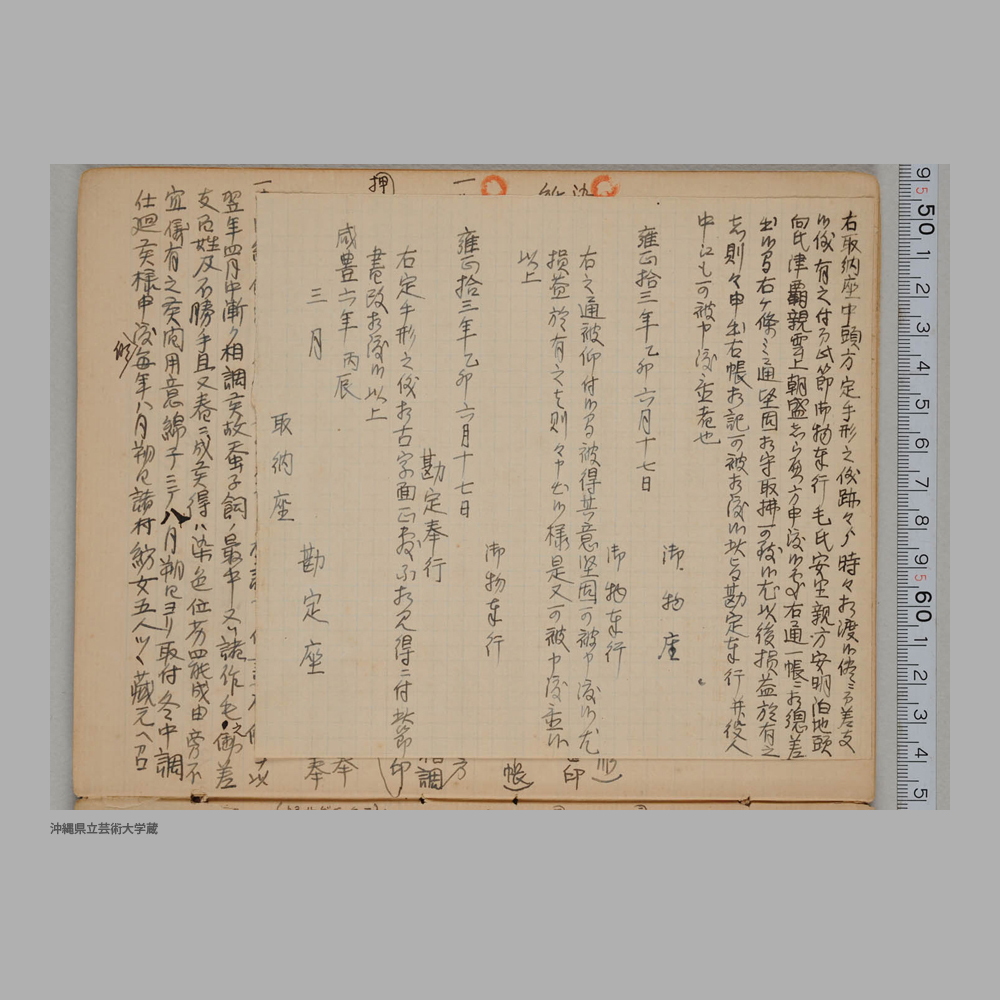 右取納座中頭方定手形之儀跡々ゟ時々相渡候儘ニ而差支
候儀有之付而此節御物奉行毛氏安里親方安明泊地頭
向氏津覇親雲上朝盛
出候間右ケ條之通堅固相守取拂可致候尤以後損益於有之
者則々申出右帳相記可被相渡候此旨勘定奉行并役人
中江も可被申渡置者也
雍正拾三年乙卯六月十七日
御物座
御物奉行
右之通被仰付候間被得其意堅固可被申渡候尤
損益於有之者則々申出候様是又可被申渡置候
以上
雍正拾三年乙卯六月十七日
御物奉行
勘定奉行
右定手形之儀相古字面不相見得ニ付此節
書改相渡候以上
咸豊六年丙辰
三月
勘定座
取納座
翌年四月中漸々相調候故蚕子飼ノ最中又ハ諸作毛之働差
支百姓及不勝手且又春ニ成候得ハ染色位劣四能成由旁不
宜儀有之候間用意綿子ニテ八月朔日ヨリ取付冬中調
仕廻候様申渡毎年八月朔日諸村紡女五人ツヽ蔵元ヘ召
押
印
方
帳
印
奉